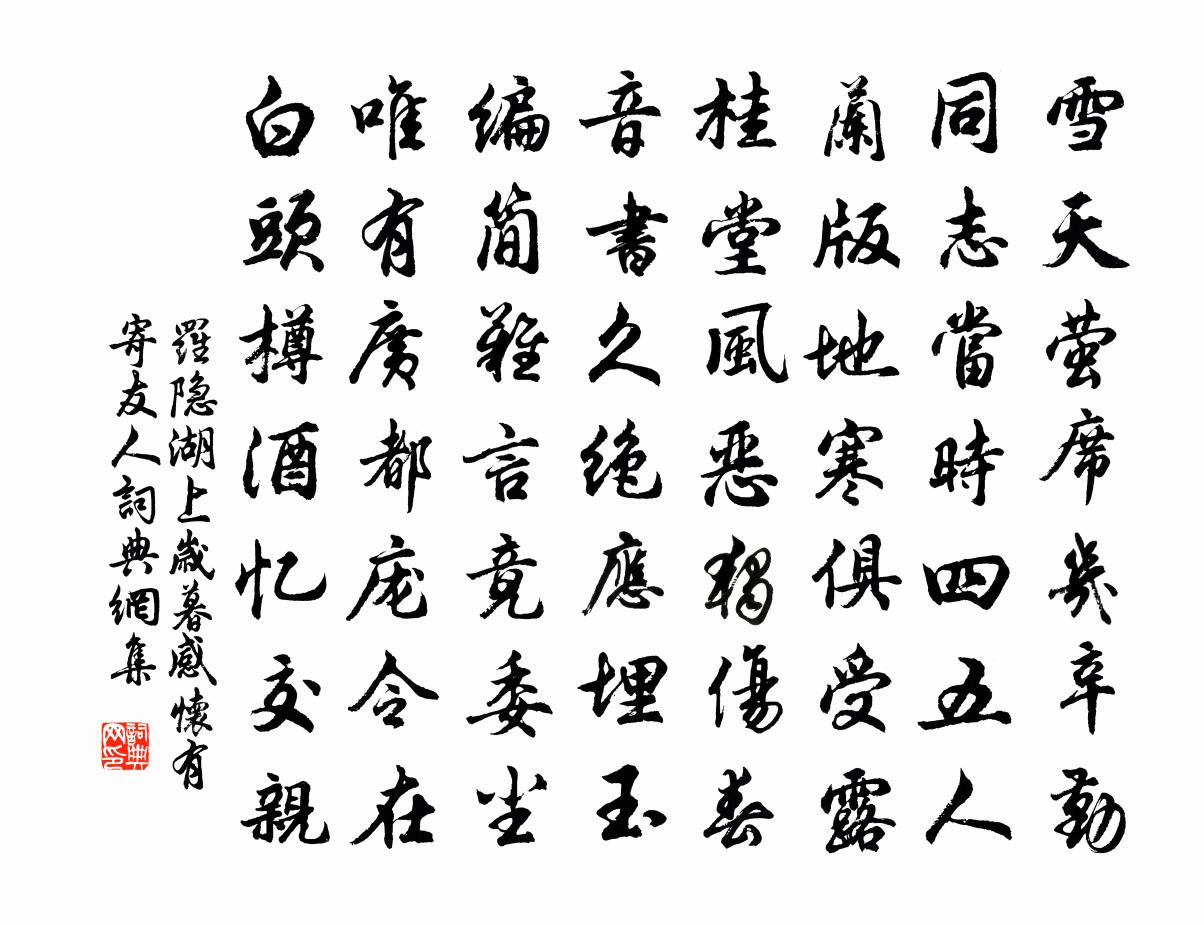 雪天萤席幾辛勤
同志當時四五人
蘭版地寒俱受露
桂堂風恶獨傷春
音書久絶應埋玉
編簡難言竟委尘
唯有廣都庞令在
白頭樽酒忆交親
羅隐湖上歲暮感懷有
寄友人詞典網集
詞典
网印